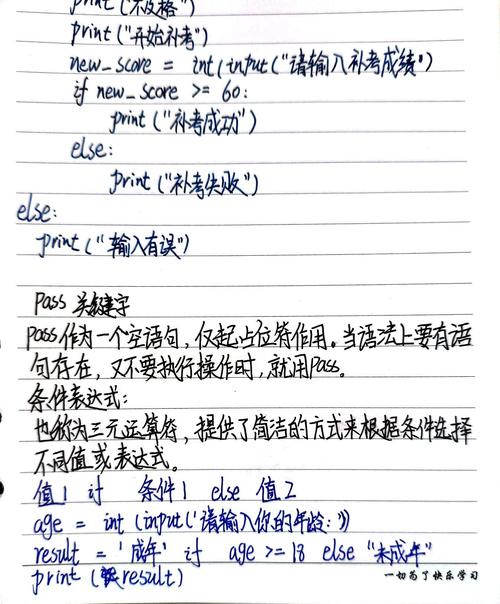 print("不及格")
print("开始补考")
new_score = int(input("请输入补考成绩")
if new_score >= 60:
print("补考成功")
else:
print("补考失败")
else:
print("输入有误")
Pass 关键字
Pass作为一个空语句,仅起占位符作用。当语法上要有语
句存在,又不要执行操作时,就用Pass。
条件表达式:
也称为三元运算符,提供了简洁的方式来根据条件选择
不同值或表达式。
值1 if 条件1 else 值2
age = int(input('请输入你的年龄:'))
result = '成年' if age >= 18 else "未成年"
print(result)
一切为了快乐学习